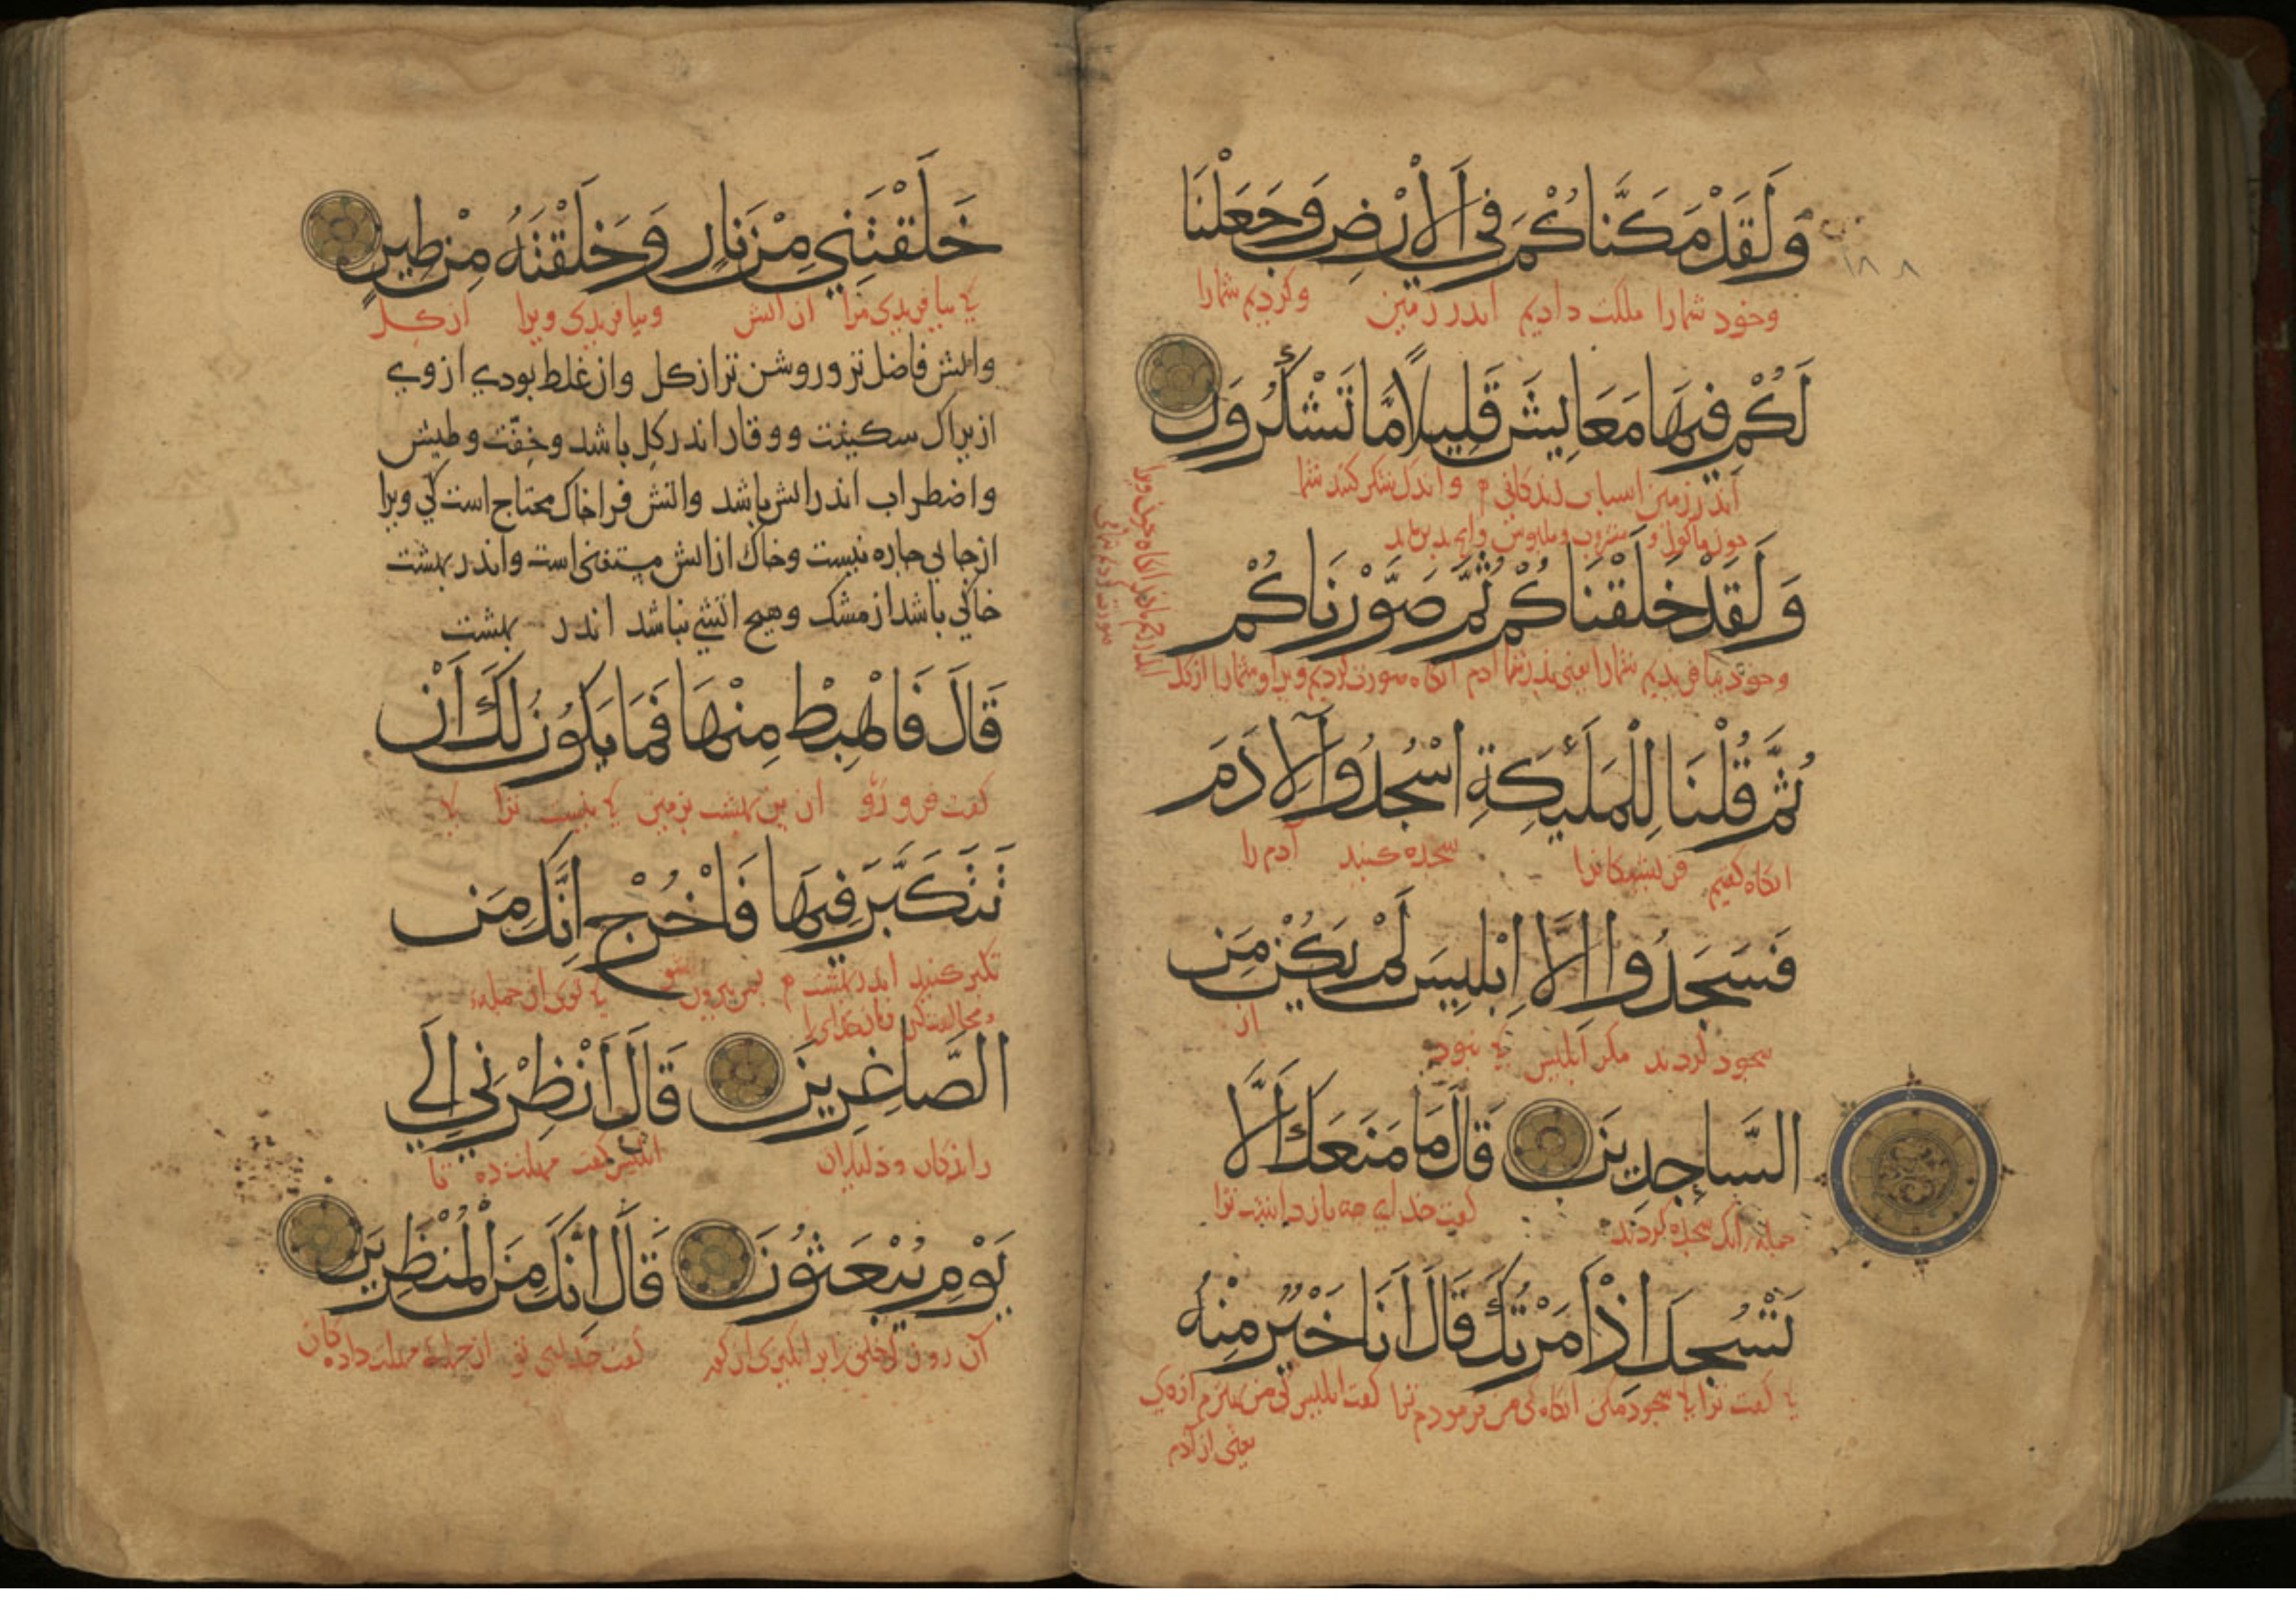 وَلَقَدْ مَكَّنَّاكُمْ فِي الْأَرْضِ وَجَعَلْنَا
١٨٨
وخود شمارا ملكت داديم اندر زمين وكرديم شمارا
لَكُمْ فِيهَا مَعَايِشَ قَلِيلًا مَّا تَشْكُرُونَ
اندر زمين اسباب زندكاني م واندك شكر كنند شما
جون ماكول و مشروب وملبوس
وَلَقَدْ خَلَقْنَاكُمْ ثُمَّ صَوَّرْنَاكُمْ
وخود بيافريديم شمارا يعني بدر شما ادم انكاه صورت كرديم ويرا وشمارا از كل
ثُمَّ قُلْنَا لِلْمَلَئِكَةِ اسْجُدُوا لِآدَمَ
انكاه كفتيم فريشتكانرا سجده كنيد آدم را
فَسَجَدُوا إِلَّا إِبْلِيسَ لَمْ يَكُنْ مِنَ
سجود كردند مكر ابليس كه نبود از
السَّاجِدِينَ قَالَ مَا مَنَعَكَ أَلَّا
جمله انك سجده كردند كفت خداي جه باز داشت ترا
تَسْجُدَ إِذْ أَمَرْتُكَ قَالَ أَنَا خَيْرٌ مِنْهُ
كفت ترا سجود مكن انكاه كي من فرمودم ترا كفت ابليس كي من بهترم ازوي
يعني از آدم
خَلَقْتَنِي مِنْ نَارٍ وَخَلَقْتَهُ مِنْ طِينٍ
كه بيافريدي مرا از اتش وبيافريدي ويرا از كل
واتش فاضل تر وروشن تر از كل واز غلط بودي ازوي
ازيراك سكينت ووقار اندر كل باشد وخفّت وطيش
واضطراب اندر اتش باشد واتش فرا خاك محتاج است كي ويرا
از جايي جاره نيست وخاك از اتش مستغني است واندر بهشت
خاكي باشد از مشك وهيج اتشي نباشد اندر بهشت
قَالَ فَاهْبِطْ مِنْهَا فَمَا يَكُونُ لَكَ أَنْ
كفت فرو رو ازين بهشت بزمين كه نيست ترا كه
تَتَكَبَّرَ فِيهَا فَاخْرُجْ إِنَّكَ مِنَ
تكبر كنيد اندر بهشت م بس بيرون شو كه توي از جمله
ومخالفت كني فرمان خدايرا
الصَّاغِرِينَ قَالَ أَنْظِرْنِي إِلَى
راندكان وذليلان ابليس كفت مهلت ده تا
يَوْمِ يُبْعَثُونَ قَالَ إِنَّكَ مِنَ الْمُنْظَرِينَ
آن روز كي خلق را بر انكيزي از كور كفت خداي تو از جمله مهلت داده كان